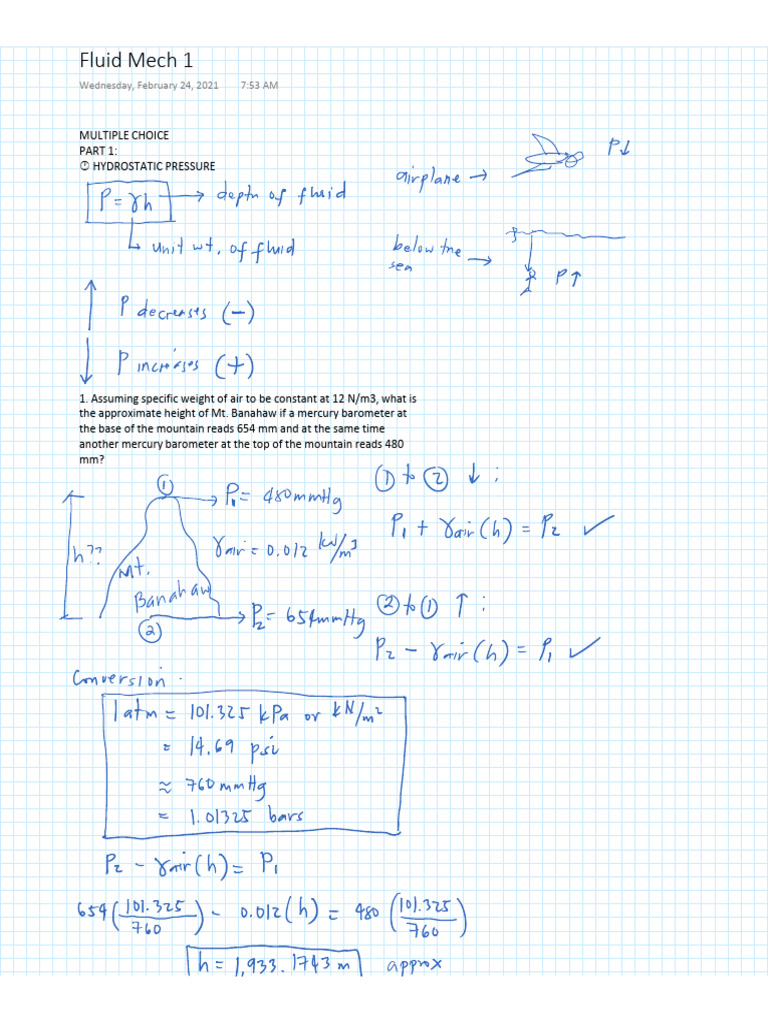 Fluid Mech 1
Wednesday, February 24, 2021 7:53 AM
MULTIPLE CHOICE
PART 1:
① HYDROSTATIC PRESSURE
P = γh → depth of fluid
unit wt. of fluid
airplane → P↓
below the
sea → P↑
↑ P decreases (−)
↓ P increases (+)
1. Assuming specific weight of air to be constant at 12 N/m3, what is
the approximate height of Mt. Banahaw if a mercury barometer at
the base of the mountain reads 654 mm and at the same time
another mercury barometer at the top of the mountain reads 480
mm?
① → P₁ = 480mmHg
h??
Mt.
Banahaw
γair = 0.012 kN/m³
② → P₂ = 654mmHg
① to ② ↓ :
P₁ + γair(h) = P₂ ✓
② to ① ↑ :
P₂ − γair(h) = P₁ ✓
Conversion :
1 atm = 101.325 kPa or kN/m²
= 14.69 psi
≈ 760mmHg
= 1.01325 bars
P₂ − γair(h) = P₁
654(101.325/760) − 0.012(h) = 480(101.325/760)
h = 1,933.1743 m approx